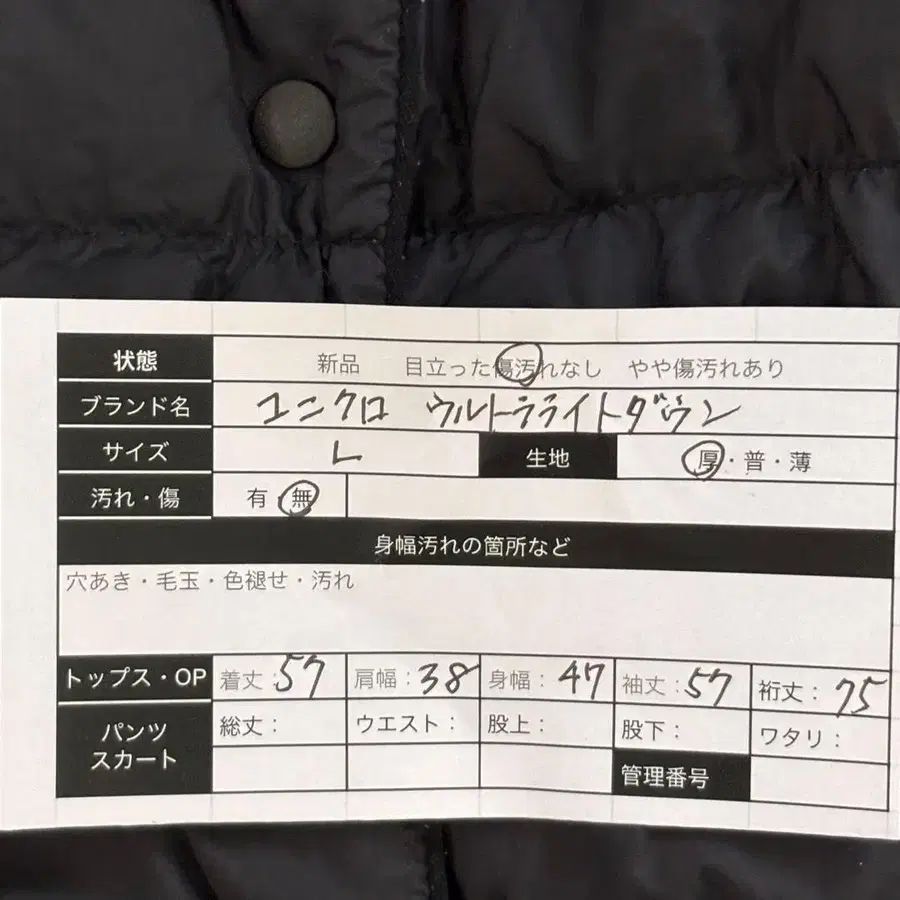 状態 新品 目立った傷汚れなし やや傷汚れあり
ブランド名 ユニクロ ウルトラライトダウン
サイズ L 生地 厚・普・薄
汚れ・傷 有・無
身幅汚れの箇所など
穴あき・毛玉・色褪せ・汚れ
トップス・OP 着丈:57 肩幅:38 身幅: 47 袖丈:57 裄丈: 75
パンツ 総丈: ウエスト: 股上: 股下: ワタリ:
スカート
管理番号